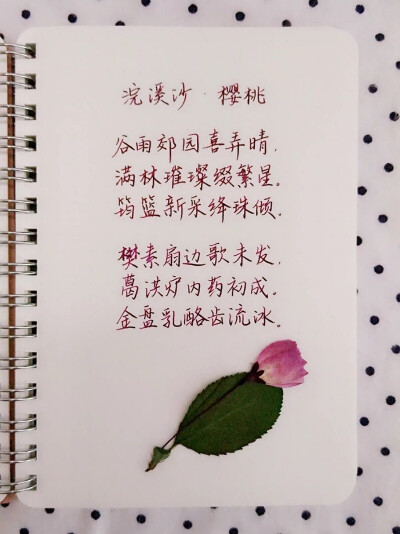 浣溪沙·樱桃
谷雨郊园喜弄晴.
满林璀璨缀繁星。
筠篮新采绛珠倾.
樊素扇边歌未发.
葛洪炉内药初成。
金盘乳酪齿流冰.